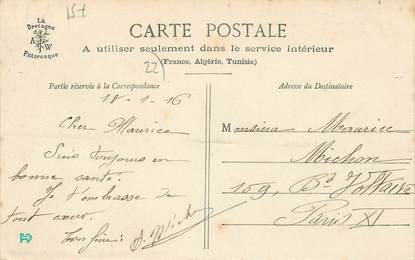 15+
La
Bretagne
A W
Pittoresque
CARTE POSTALE
A utiliser seulement dans le service intérieur
(France, Algérie, Tunisie)
22
Partie réservée à la Correspondance
Adresse du Destinataire
18-1-16
Cher Maurice
Suis toujours en
bonne santé.
Je t'embrasse de
tout cœur.
Ton frère:
Monsieur Maurice
Michon
159, Bd Voltaire
Paris XI